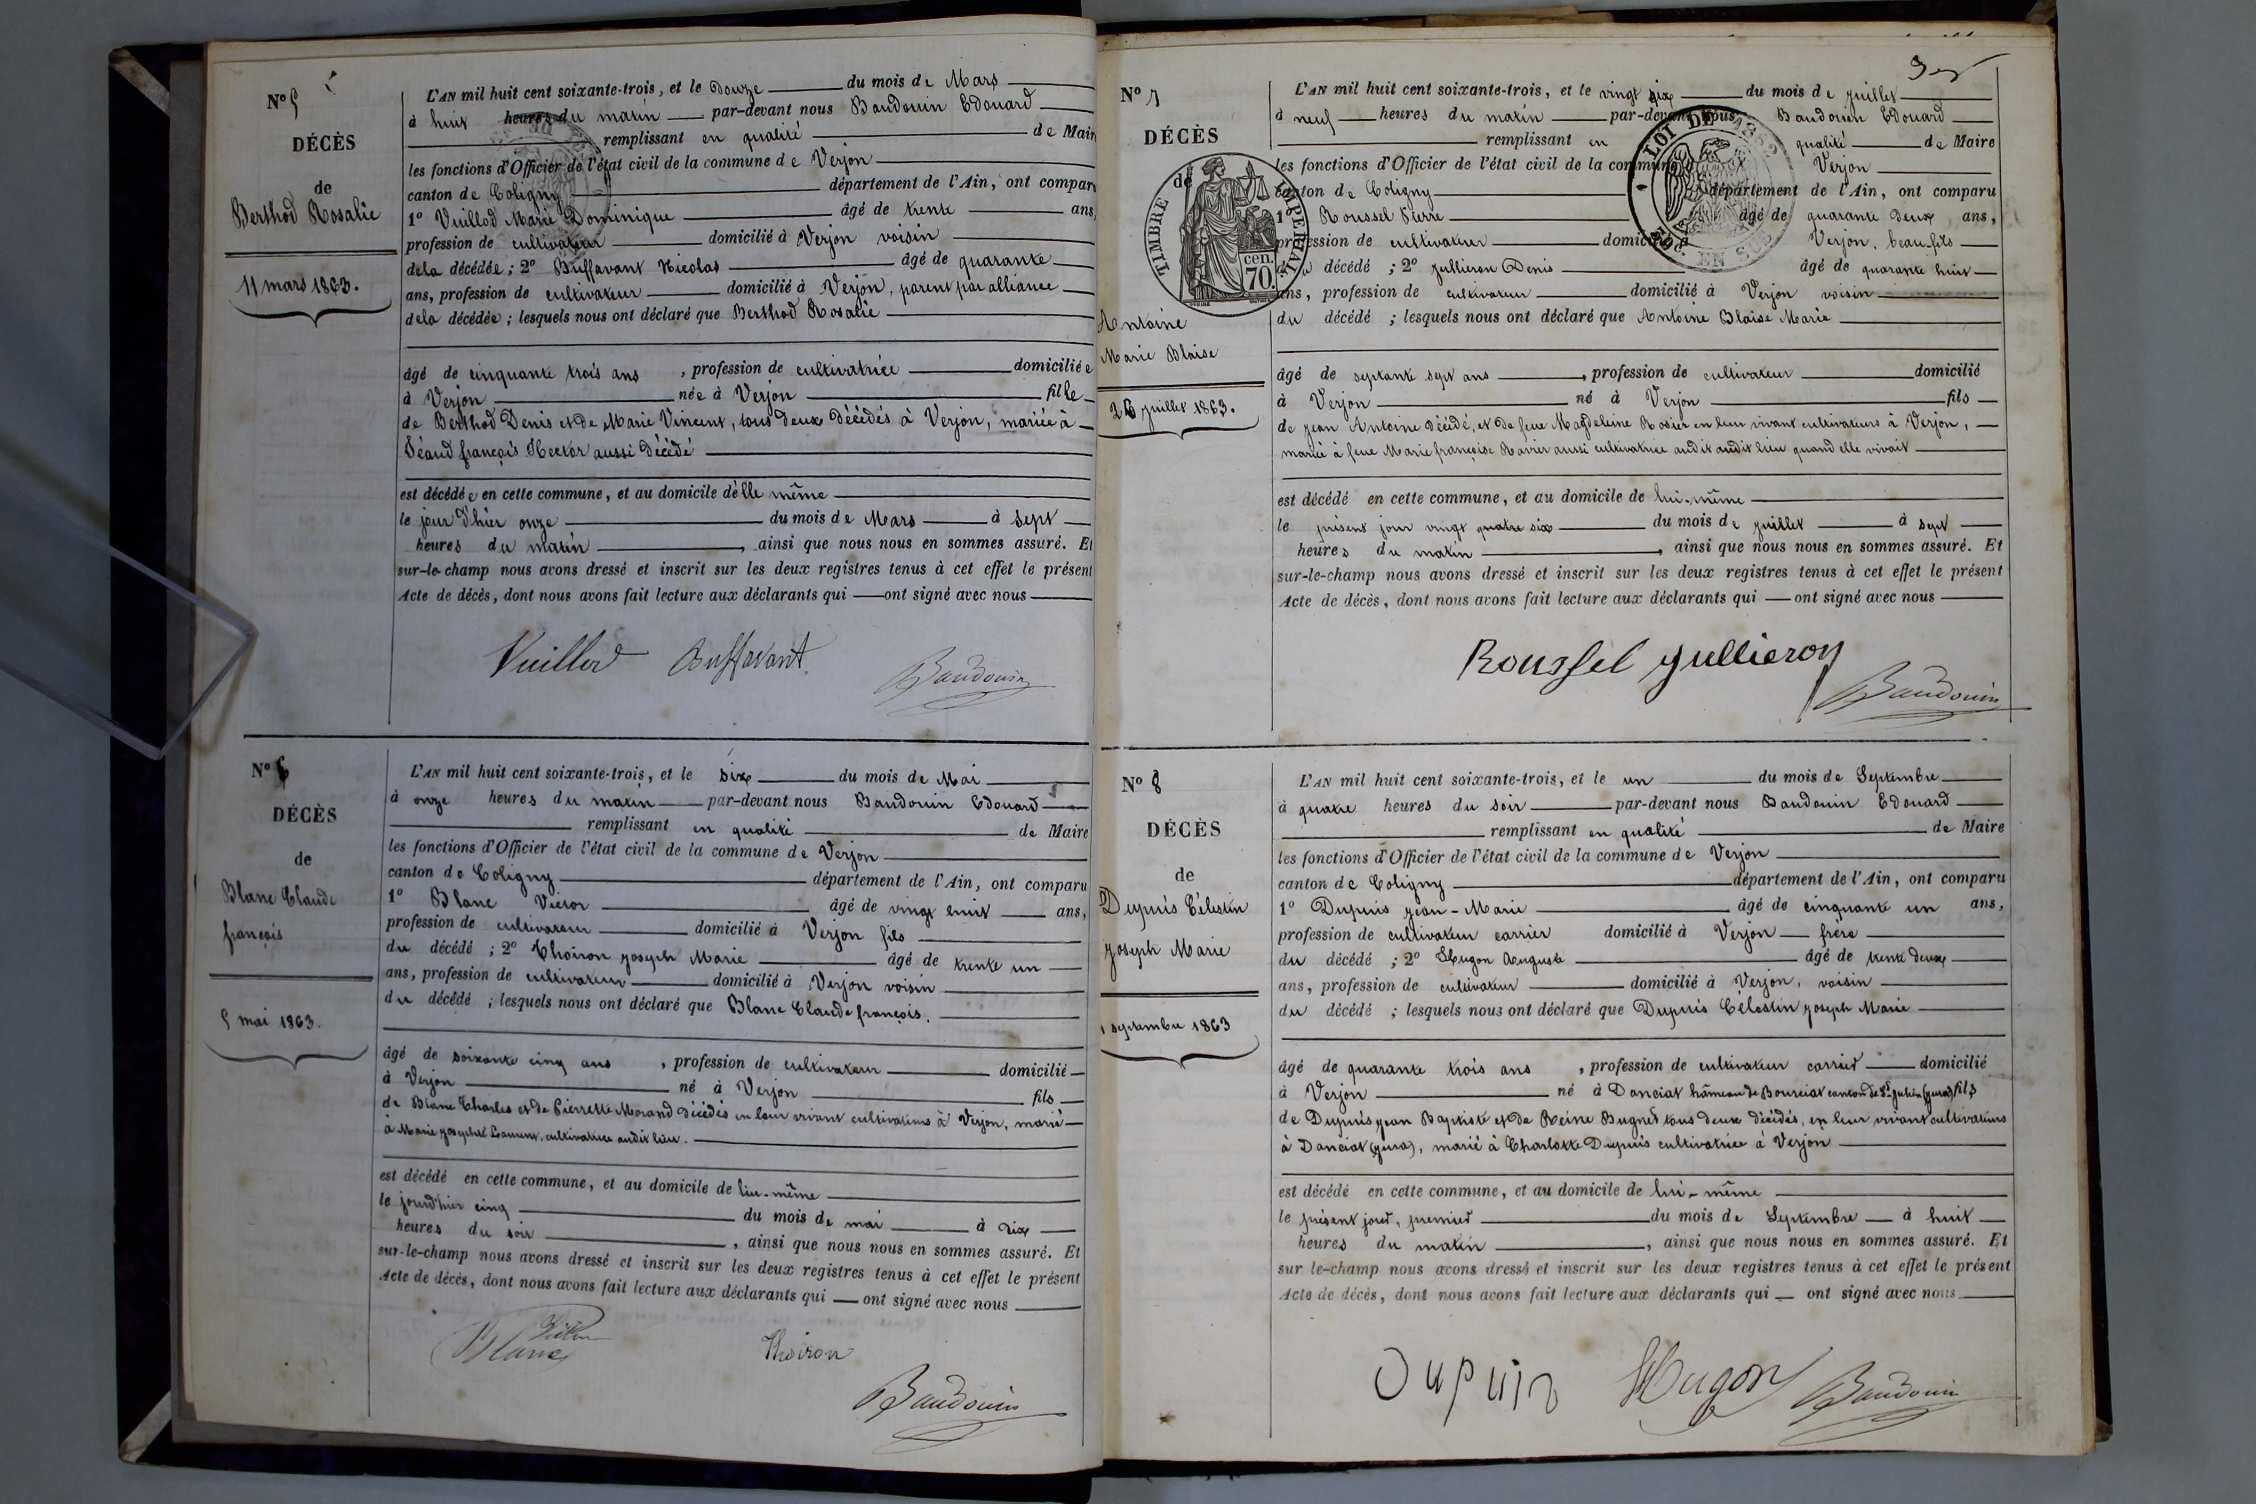 N° 5
DÉCÈS
de
Berthod Rosalie
11 mars 1863.
L'AN mil huit cent soixante-trois, et le douze du mois de Mars
à huit heures du matin par-devant nous Baudouin Edouard
remplissant en qualité de Maire
les fonctions d'Officier de l'état civil de la commune de Verjon
canton de Coligny département de l'Ain, ont comparu
1° Vuillod Marie Dominique âgé de trente ans,
profession de cultivateur domicilié à Verjon voisin
de la décédée ; 2° Buffavant Nicolas âgé de quarante
ans, profession de cultivateur domicilié à Verjon, parent par alliance
de la décédée ; lesquels nous ont déclaré que Berthod Rosalie
âgé de cinquante trois ans , profession de cultivatrice domiciliée
à Verjon née à Verjon fille
de Berthod Denis et de Marie Vincent, tous deux décédés à Verjon, mariée à
Féaud françois Hector aussi décédé
est décédée en cette commune, et au domicile d'elle même
le jour d'hier onze du mois de Mars à sept
heures du matin , ainsi que nous nous en sommes assuré. Et
sur-le-champ nous avons dressé et inscrit sur les deux registres tenus à cet effet le présent
Acte de décès, dont nous avons fait lecture aux déclarants qui ont signé avec nous
Vuillod Buffavant Baudouin
N° 6
DÉCÈS
de
Blanc Claude
françois
5 mai 1863.
L'AN mil huit cent soixante-trois, et le six du mois de Mai
à onze heures du matin par-devant nous Baudouin Edouard
remplissant en qualité de Maire
les fonctions d'Officier de l'état civil de la commune de Verjon
canton de Coligny département de l'Ain, ont comparu
1° Blanc Victor âgé de vingt huit ans,
profession de cultivateur domicilié à Verjon fils
du décédé ; 2° Thoiron joseph Marie âgé de trente un
ans, profession de cultivateur domicilié à Verjon voisin
du décédé ; lesquels nous ont déclaré que Blanc Claude françois.
âgé de soixante cinq ans , profession de cultivateur domicilié
à Verjon né à Verjon fils
de Blanc Charles et de Pierrette Morand décédés en leur vivant cultivateurs à Verjon, marié
à Marie josephte Laurent, cultivatrice audit lieu.
est décédé en cette commune, et au domicile de lui-même
le jour d'hier cinq du mois de mai à dix
heures du soir , ainsi que nous nous en sommes assuré. Et
sur-le-champ nous avons dressé et inscrit sur les deux registres tenus à cet effet le présent
Acte de décès, dont nous avons fait lecture aux déclarants qui ont signé avec nous
Blanc Victor Thoiron
Baudouin
N° 7
DÉCÈS
de
TIMBRE IMPERIAL
70. cen.
Antoine
Marie Blaise
26 juillet 1863.
LOI DE 1862
EN SUS
L'AN mil huit cent soixante-trois, et le vingt six du mois de juillet
à neuf heures du matin par-devant nous Baudouin Edouard
remplissant en qualité de Maire
les fonctions d'Officier de l'état civil de la commune Verjon
canton de Coligny département de l'Ain, ont comparu
1° Roussel Pierre âgé de quarante deux ans,
profession de cultivateur domicilié à Verjon, beau-fils
du décédé ; 2° jullieron Denis âgé de quarante huit
ans, profession de cultivateur domicilié à Verjon voisin
du décédé ; lesquels nous ont déclaré que Antoine Blaise Marie
âgé de septante sept ans , profession de cultivateur domicilié
à Verjon né à Verjon fils
de jean Antoine décédé, et de feue Magdeleine Rosier en leur vivant cultivateurs à Verjon,
marié à feue Marie françoise Ravier aussi cultivatrice audit audit lieu quand elle vivait
est décédé en cette commune, et au domicile de lui-même
le présent jour vingt quatre six du mois de juillet à sept
heures du matin , ainsi que nous nous en sommes assuré. Et
sur-le-champ nous avons dressé et inscrit sur les deux registres tenus à cet effet le présent
Acte de décès, dont nous avons fait lecture aux déclarants qui ont signé avec nous
Roussel jullieron
Baudouin
N° 8
DÉCÈS
de
Dupuis Célestin
joseph Marie
1 septembre 1863
L'AN mil huit cent soixante-trois, et le un du mois de Septembre
à quatre heures du soir par-devant nous Baudouin Edouard
remplissant en qualité de Maire
les fonctions d'Officier de l'état civil de la commune de Verjon
canton de Coligny département de l'Ain, ont comparu
1° Dupuis jean-Marie âgé de cinquante un ans,
profession de cultivateur carrier domicilié à Verjon frère
du décédé ; 2° Hugon Auguste âgé de trente deux
ans, profession de cultivateur domicilié à Verjon, voisin
du décédé ; lesquels nous ont déclaré que Dupuis Célestin joseph Marie
âgé de quarante trois ans , profession de cultivateur carrier domicilié
à Verjon né à Danciat hâmeau de Bourciat canton de St julien (jura) fils
de Dupuis jean Baptiste et de Reine Bugnet tous deux décédés, en leur vivant cultivateurs
à Danciat (jura), marié à Charlotte Dupuis cultivatrice à Verjon
est décédé en cette commune, et au domicile de lui-même
le présent jour, premier du mois de Septembre à huit
heures du matin , ainsi que nous nous en sommes assuré. Et
sur le-champ nous avons dressé et inscrit sur les deux registres tenus à cet effet le présent
Acte de décès, dont nous avons fait lecture aux déclarants qui ont signé avec nous
Dupuis Hugon Baudouin